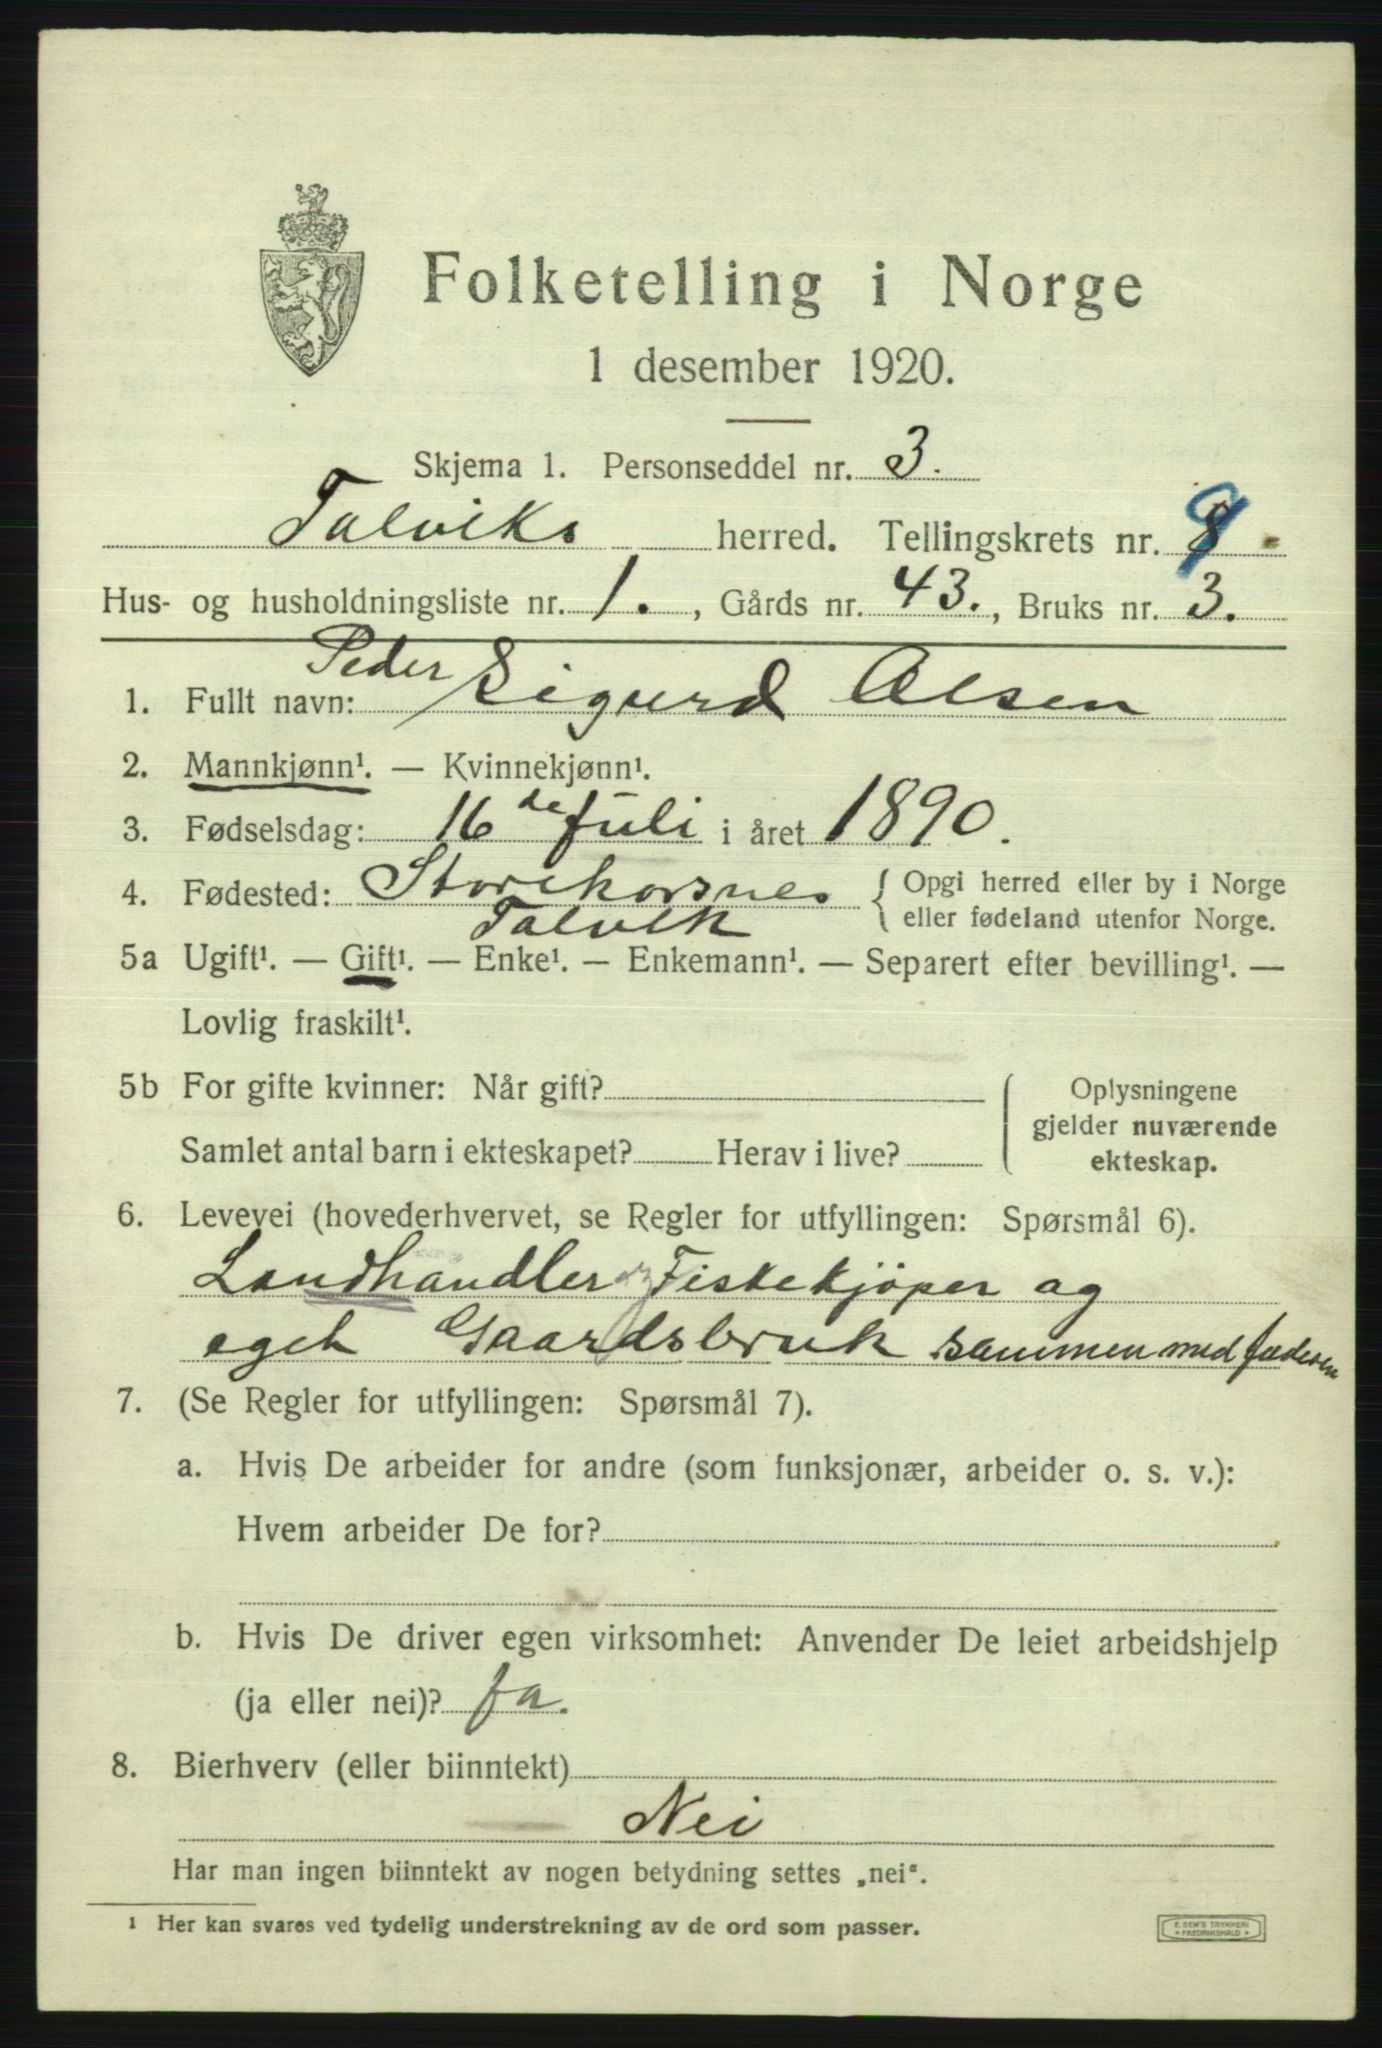 Folketelling i Norge
1 desember 1920.
Skjema 1. Personseddel nr. 3.
Talviks herred. Tellingskrets nr. 9
Hus- og husholdningsliste nr. 1. , Gårds nr. 43. , Bruks nr. 3.
1. Fullt navn: Peder Sigurd Olsen
2. Mannkjønn¹. — Kvinnekjønn¹.
3. Fødselsdag: 16de Juli i året 1890.
4. Fødested: Storekorsnes { Opgi herred eller by i Norge
Talvik eller fødeland utenfor Norge.
5a Ugift¹. — Gift¹. — Enke¹. — Enkemann¹. — Separert efter bevilling¹. —
Lovlig fraskilt¹.
5b For gifte kvinner: Når gift? Oplysningene
gjelder nuværende
Samlet antal barn i ekteskapet? Herav i live? ekteskap.
6. Levevei (hovederhvervet, se Regler for utfyllingen: Spørsmål 6).
Landhandler og Fiskekjöper og
eget Gaardsbruk sammen med faderen
7. (Se Regler for utfyllingen: Spørsmål 7).
a. Hvis De arbeider for andre (som funksjonær, arbeider o. s. v.):
Hvem arbeider De for?
b. Hvis De driver egen virksomhet: Anvender De leiet arbeidshjelp
(ja eller nei)? Ja.
8. Bierhverv (eller biinntekt)
Nei
Har man ingen biinntekt av nogen betydning settes „nei“.
¹ Her kan svares ved tydelig understrekning av de ord som passer.
E. SEM'S TRYKKERI
* FREDRIKSHALD *